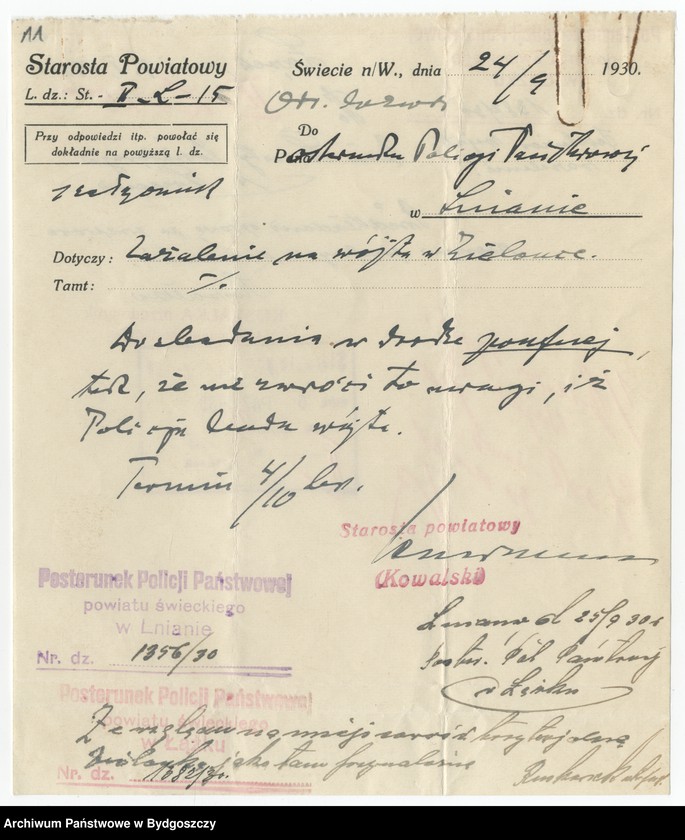 11
Starosta Powiatowy
Świecie n/W., dnia 24/9 1930.
L. dz.: St. - II-L-15
Do
Przy odpowiedzi itp. powołać się
dokładnie na powyższą l. dz.
Posterunku Policji Państwowej
w Lnianie
Dotyczy: Zażalenie na wójta w Zielonce.
Tamt: -/.
Do zbadania w drodze poufnej,
tak, że nie zwróci to uwagi, iż
Policja bada wójta.
Termin 4/10 br.
Starosta powiatowy
(Kowalski)
Posterunek Policji Państwowej
powiatu świeckiego
w Lnianie
Nr. dz. 1356/30
Lniano d 25/9 30 r
Poster. Pol. Państwowej
w Łążku
Posterunek Policji Państwowej
powiatu świeckiego
w Łążku
Nr. dz.
Ze względu na
jako tam
Archiwum Państwowe w Bydgoszczy